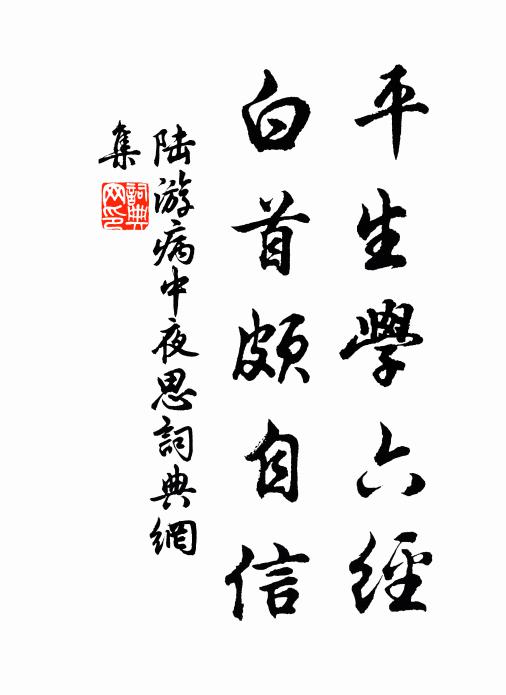 平生學六經
白首頗自信
陸游病中夜思詞典網
集
詞典
网印